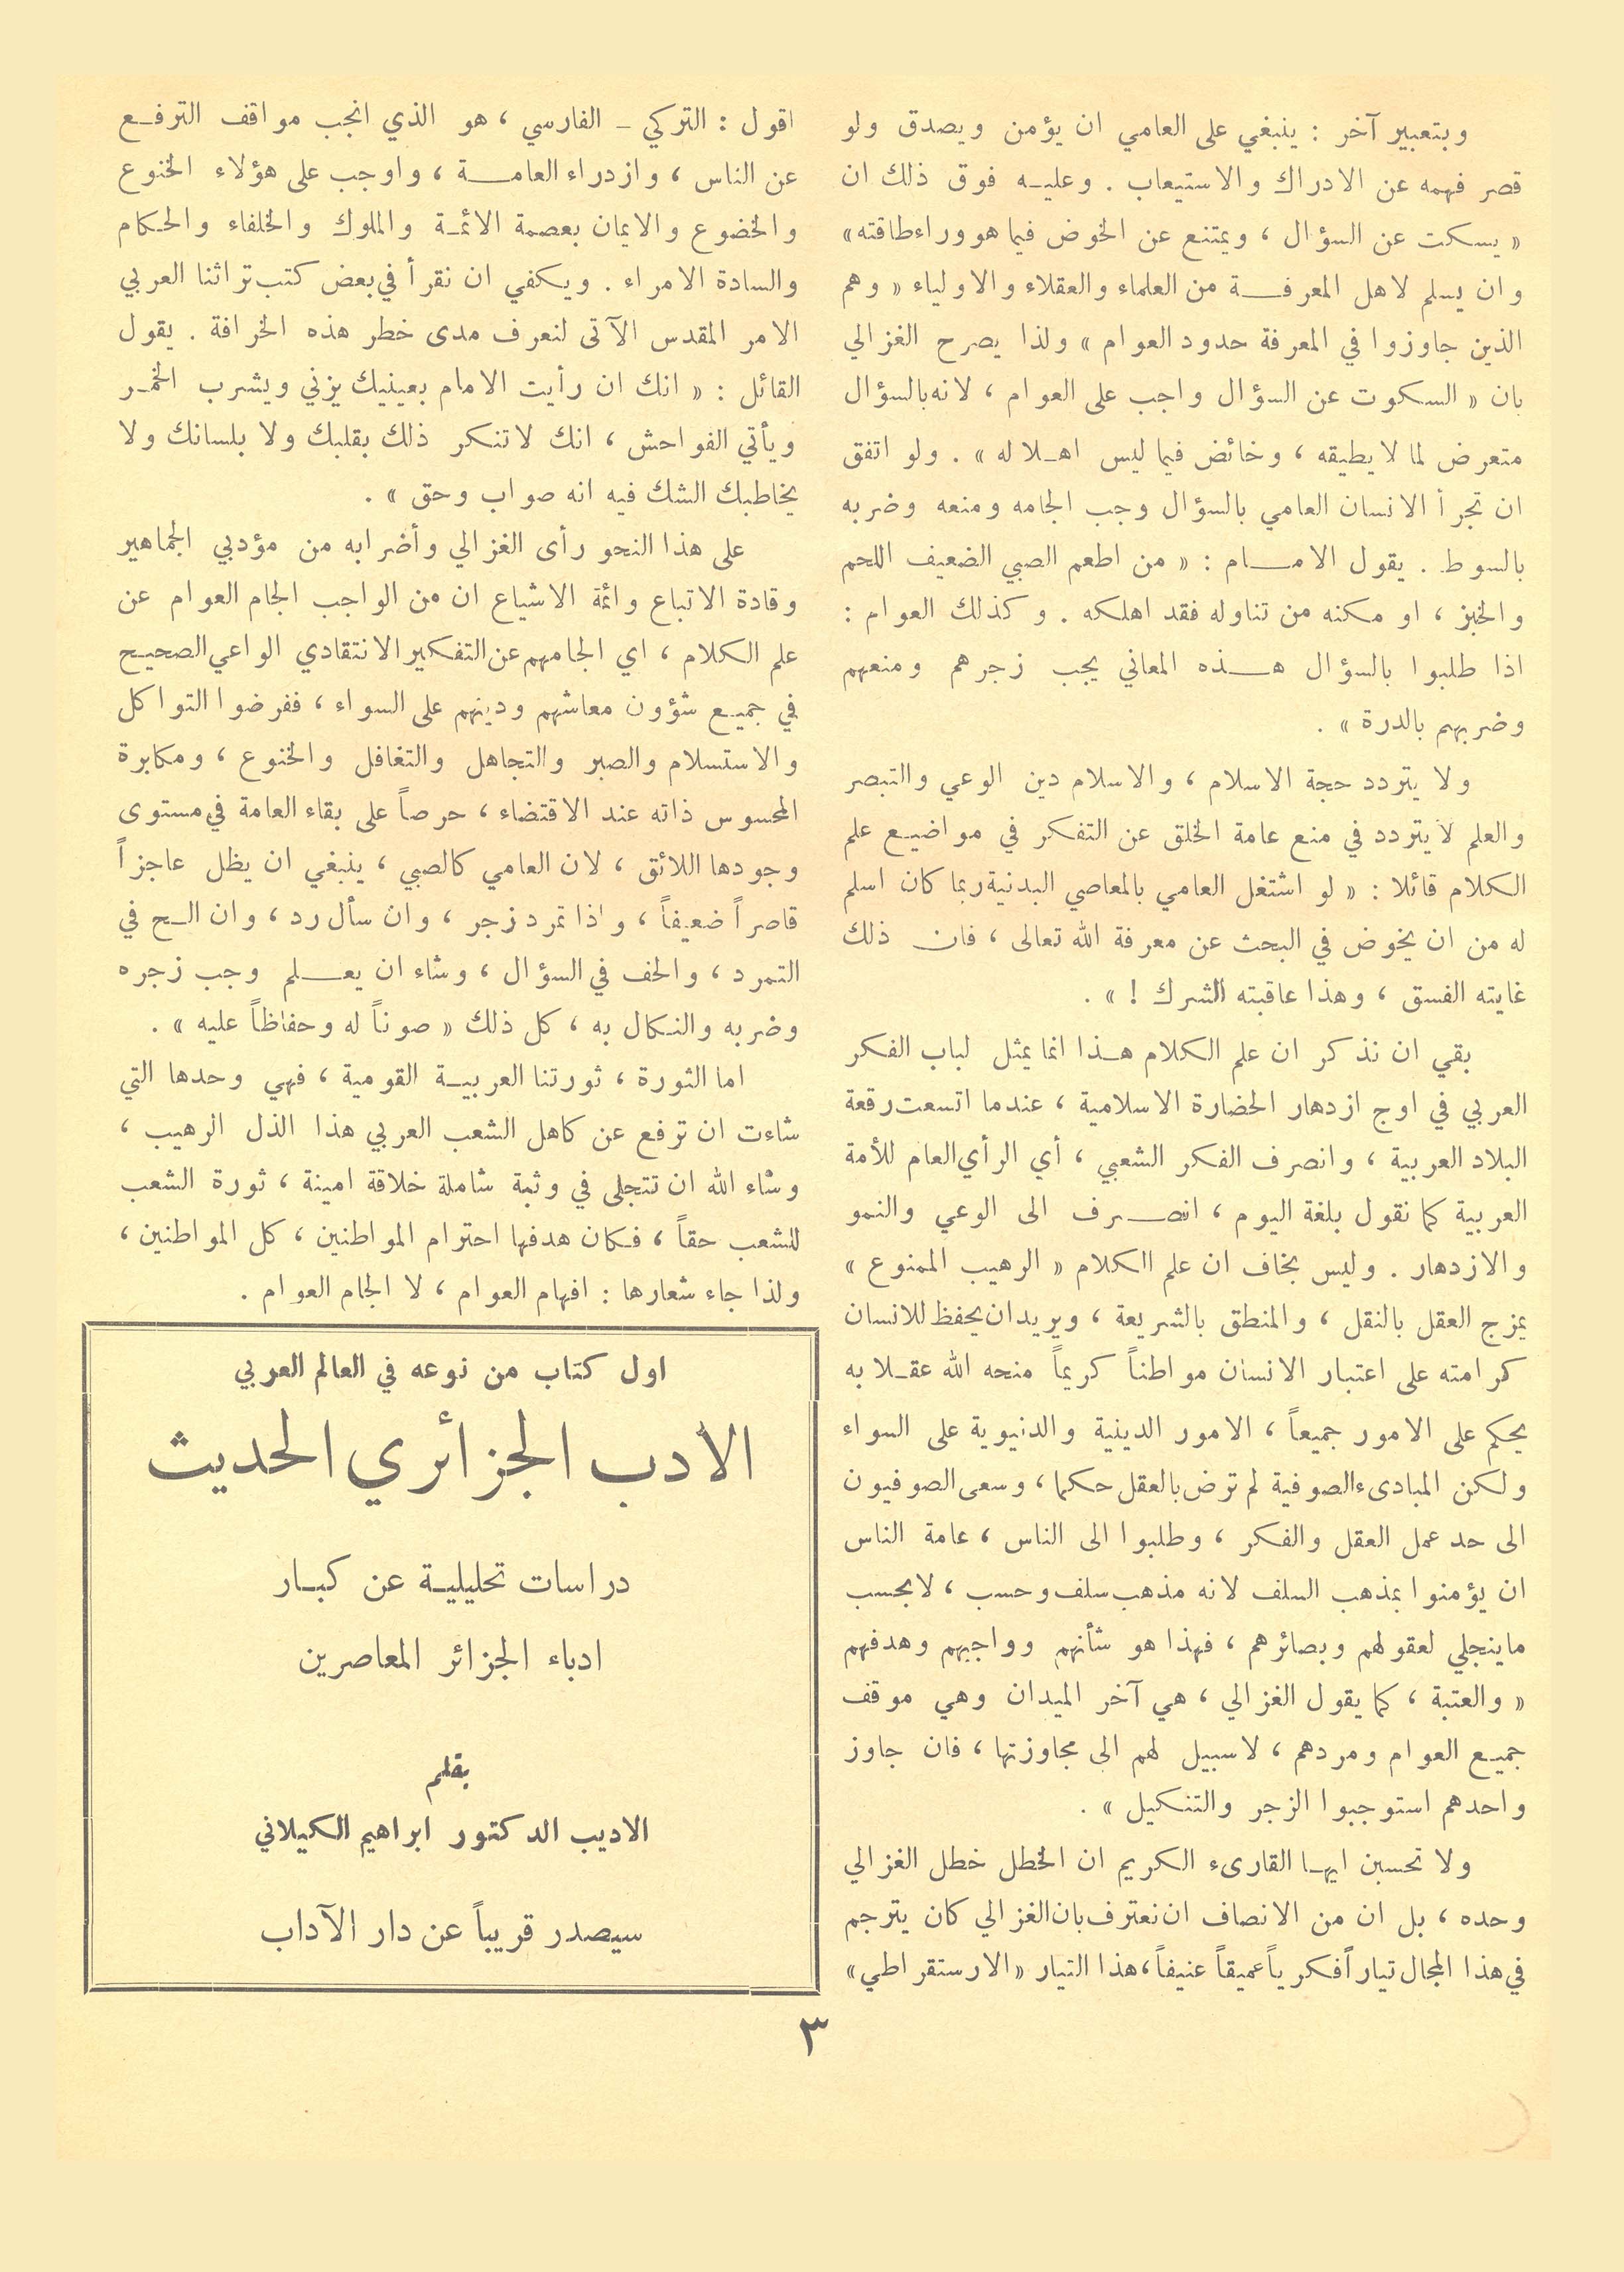 وبتعبير آخر : ينبغي على العامي ان يؤمن ويصدق ولو
قصر فهمه عن الادراك والاستيعاب . وعليه فوق ذلك ان
« يسكت عن السؤال ، ويمتنع عن الخوض فيما هو وراء طاقته »
وان يسلم لاهل المعرفة من العلماء والعقلاء والاولياء « وهم
الذين جاوزوا في المعرفة حدود العوام » ولذا يصرح الغزالي
بان « السكوت عن السؤال واجب على العوام ، لانه بالسؤال
متعرض لما لا يطيقه ، وخائض فيما ليس اهلا له » . ولو اتفق
ان تجرأ الانسان العامي بالسؤال وجب الجامه ومنعه وضربه
بالسوط . يقول الامام : « من اطعم الصبي الضعيف اللحم
والخبز ، او مكنه من تناوله فقد اهلكه . وكذلك العوام :
اذا طلبوا بالسؤال هذه المعاني يجب زجرهم ومنعهم
وضربهم بالدرة » .
ولا يتردد حجة الاسلام ، والاسلام دين الوعي والتبصر
والعلم لا يتردد في منع عامة الخلق عن التفكر في مواضيع علم
الكلام قائلا : « لو اشتغل العامي بالمعاصي البدنية ربما كان اسلم
له من ان يخوض في البحث عن معرفة الله تعالى ، فان ذلك
غايته الفسق ، وهذا عاقبته الشرك ! » .
بقي ان نذكر ان علم الكلام هذا انما يمثل لباب الفكر
العربي في اوج ازدهار الحضارة الاسلامية ، عندما اتسعت رقعة
البلاد العربية ، وانصرف الفكر الشعبي ، أي الرأي العام للأمة
العربية كما نقول بلغة اليوم ، انصرف الى الوعي والنمو
والازدهار . وليس بخاف ان علم الكلام « الرهيب الممنوع »
يمزج العقل بالنقل ، والمنطق بالشريعة ، ويريد ان يحفظ للانسان
كرامته على اعتبار الانسان مواطناً كريماً منحه الله عقلا به
يحكم على الامور جميعاً ، الامور الدينية والدنيوية على السواء
ولكن المبادىء الصوفية لم ترض بالعقل حكما ، وسعى الصوفيون
الى حد عمل العقل والفكر ، وطلبوا الى الناس ، عامة الناس
ان يؤمنوا بمذهب السلف لانه مذهب سلف وحسب ، لا بحسب
ما ينجلي لعقولهم وبصائرهم ، فهذا هو شأنهم وواجبهم وهدفهم
« والعتبة ، كما يقول الغزالي ، هي آخر الميدان وهي موقف
جميع العوام ومردهم ، لا سبيل لهم الى مجاوزتها ، فان جاوز
واحدهم استوجبوا الزجر والتنكيل » .
ولا تحسبن ايها القارىء الكريم ان الخطل خطل الغزالي
وحده ، بل ان من الانصاف ان نعترف بان الغزالي كان يترجم
في هذا المجال تياراً فكرياً عميقاً عنيفاً ، هذا التيار « الارستقراطي »
اقول : التركي – الفارسي ، هو الذي انجب مواقف الترفع
عن الناس ، وازدراء العامة ، واوجب على هؤلاء الخنوع
والخضوع والايمان بعصمة الائمة والملوك والخلفاء والحكام
والسادة الامراء . ويكفي ان نقرأ في بعض كتب تراثنا العربي
الامر المقدس الآتى لنعرف مدى خطر هذه الخرافة . يقول
القائل : « انك ان رأيت الامام بعينيك يزني ويشرب الخمر
ويأتي الفواحش ، انك لا تنكر ذلك بقلبك ولا بلسانك ولا
يخاطبك الشك فيه انه صواب وحق » .
على هذا النحو رأى الغزالي وأضرابه من مؤدبي الجماهير
وقادة الاتباع وائمة الاشياع ان من الواجب الجام العوام عن
علم الكلام ، اي الجامهم عن التفكير الانتقادي الواعي الصحيح
في جميع شؤون معاشهم ودينهم على السواء ، ففرضوا التواكل
والاستسلام والصبر والتجاهل والتغافل والخنوع ، ومكابرة
المحسوس ذاته عند الاقتضاء ، حرصاً على بقاء العامة في مستوى
وجودها اللائق ، لان العامي كالصبي ، ينبغي ان يظل عاجزاً
قاصراً ضعيفاً ، واذا تمرد زجر ، وان سأل رد ، وان الح في
التمرد ، والحف في السؤال ، وشاء ان يعلم وجب زجره
وضربه والنكال به ، كل ذلك « صوناً له وحفاظاً عليه » .
اما الثورة ، ثورتنا العربية القومية ، فهي وحدها التي
شاءت ان ترفع عن كاهل الشعب العربي هذا الذل الرهيب ،
وشاء الله ان تتجلى في وثبة شاملة خلاقة امينة ، ثورة الشعب
للشعب حقاً ، فكان هدفها احترام المواطنين ، كل المواطنين ،
ولذا جاء شعارها : افهام العوام ، لا الجام العوام .
اول كتاب من نوعه في العالم العربي
الأدب الجزائري الحديث
دراسات تحليلية عن كبار
ادباء الجزائر المعاصرين
بقلم
الاديب الدكتور ابراهيم الكيلاني
سيصدر قريباً عن دار الآداب
٣